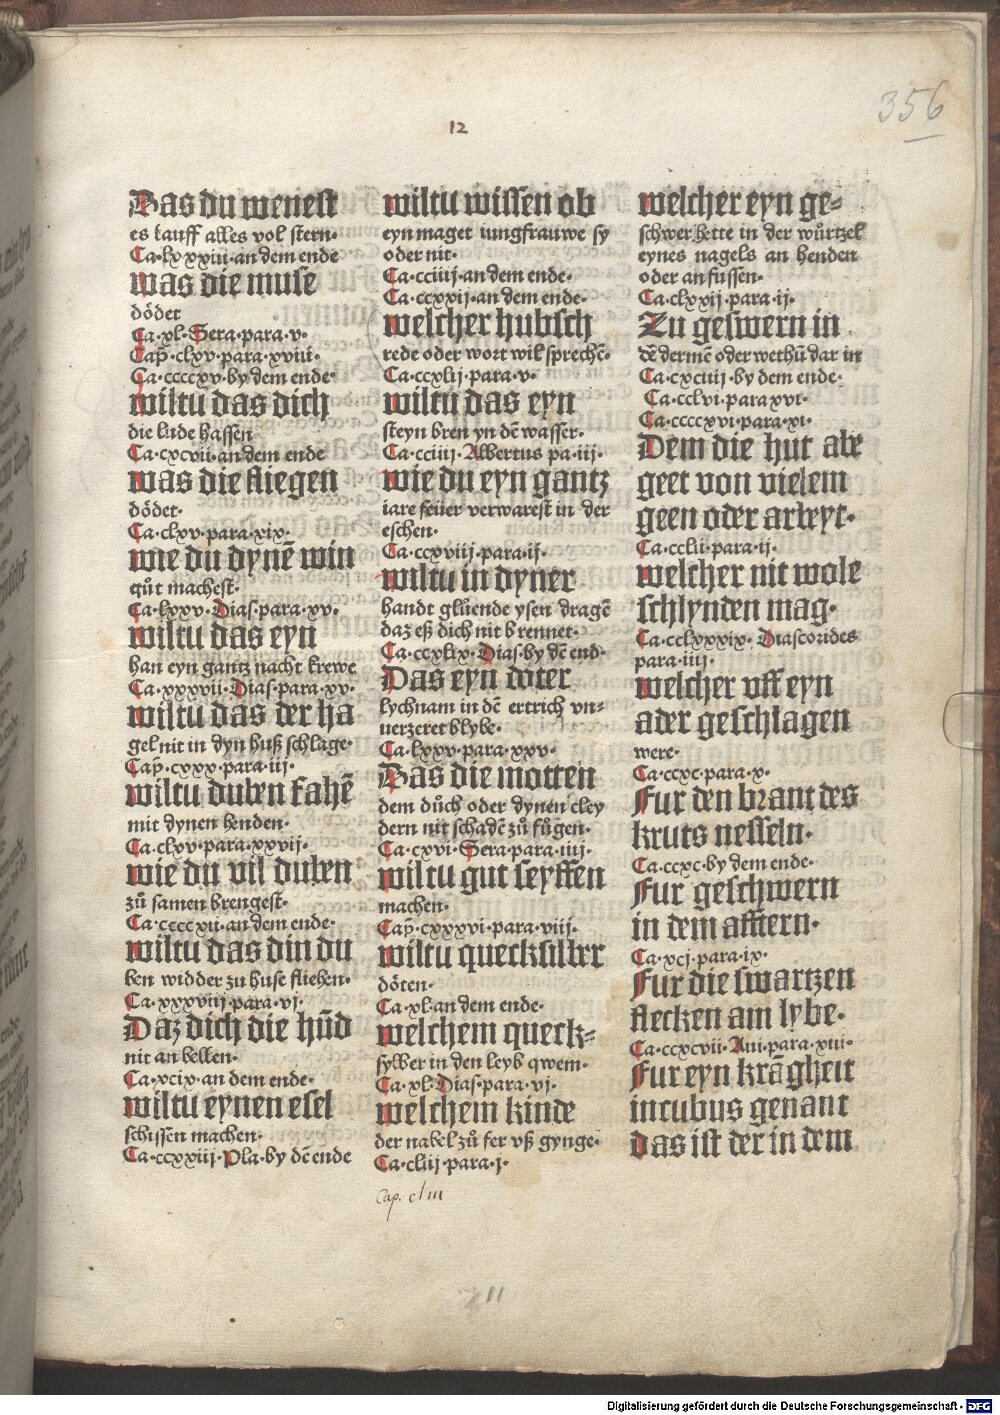 356
12
Das du menest
es lauff alles vol stern·
Ca·lxxxiii·an dem ende
was die muse
dödet
Ca·xl·Sera·para·v·
Cap̃·clxv·para·xviii·
Ca·ccccxv·by dem ende·
wiltu das dich
die lude hassen
Ca·cxcvii·an dem ende
was die fliegen
dödet·
Ca·clxv·para·xix·
wie du dynē win
gůt machest·
Ca·lxxv·Dias·para·xv·
wiltu das eyn
han eyn gantz nacht krewe
Ca·xxxvii·Dias·para·xv·
wiltu das der ha
gel nit in dyn huß schlage·
Cap̃·cxxx·para·iij·
wiltu duben fahē
mit dynen henden·
Ca·clxv·para·xxvij·
wie du vil duben
zů samen brengest·
Ca·ccccxii·an dem ende·
wiltu das din du
ben widder zu huse fliehen·
Ca·xxxviij·para·vj·
Daz dich die hūd
nit an bellen·
Ca·xcix·an dem ende·
wiltu eynen esel
schissen machen·
Ca·ccxxiij·Pla·by dē ende
wiltu wissen ob
eyn maget iungfrauwe sy
oder nit·
Ca·cciiij·an dem ende·
Ca·ccxxij·an dem ende·
welcher hubsch
rede oder wort wil sprechē·
Ca·ccxlij·para·v·
wiltu das eyn
steyn bren yn dē wasser·
Ca·cciiij·Albertus pa·iij·
wie du eyn gantz
iare feuer verwarest in der
eschen·
Ca·ccxviij·para·ij·
wiltu in dyner
handt glüende ysen dragē
daz eß dich nit brennet·
Ca·ccxlix·Dias·by dē end·
Das eyn doter
lychnam in dē ertrich vn⸗
uerzeret blybe·
Ca·lxxv·para·xxv·
Das die motten
dem důch oder dynen cley
dern nit schadē zů fůgen·
Ca·cxvi·Sera·para·iiij·
wiltu gut seyffen
machen·
Cap̃·cxxxvi·para·viij·
wiltu quecksilber
döten·
Ca·xl·an dem ende·
welchem queck⸗
sylber in den leyb qwem·
Ca·xl·Dias·para·vj·
welchem kinde
der nabel zů fer vß gynge·
Ca·cliij·para·j·
Cap. cliii
welcher eyn ge⸗
schwer hette in der wůrtzel
eynes nagels an henden
oder an fussen·
Ca·clxxij·para·ij·
Zu geswern in
dē dermē oder wethū dar in
Ca·cxciiij·by dem ende·
Ca·cclvi·para xvi·
Ca·ccccxvi·para·xi·
Dem die hut abe
geet von vielem
geen oder arbeyt·
Ca·cclii·para·ij·
welcher nit wole
schlynden mag·
Ca·cclxxxix·Diascorides
para·iiij·
welcher vff eyn
ader geschlagen
were·
Ca·ccxc·para·x·
Fur den brant des
kruts nesseln·
Ca·ccxc·by dem ende·
Fur geschwern
in dem afftern·
Ca·xcj·para·ix·
Fur die swartzen
flecken am lybe·
Ca·ccxcvii·Aui·para·xiii·
Fur eyn krāgheit
incubus genant
das ist der in dem
11
Digitalisierung gefördert durch die Deutsche Forschungsgemeinschaft - DFG